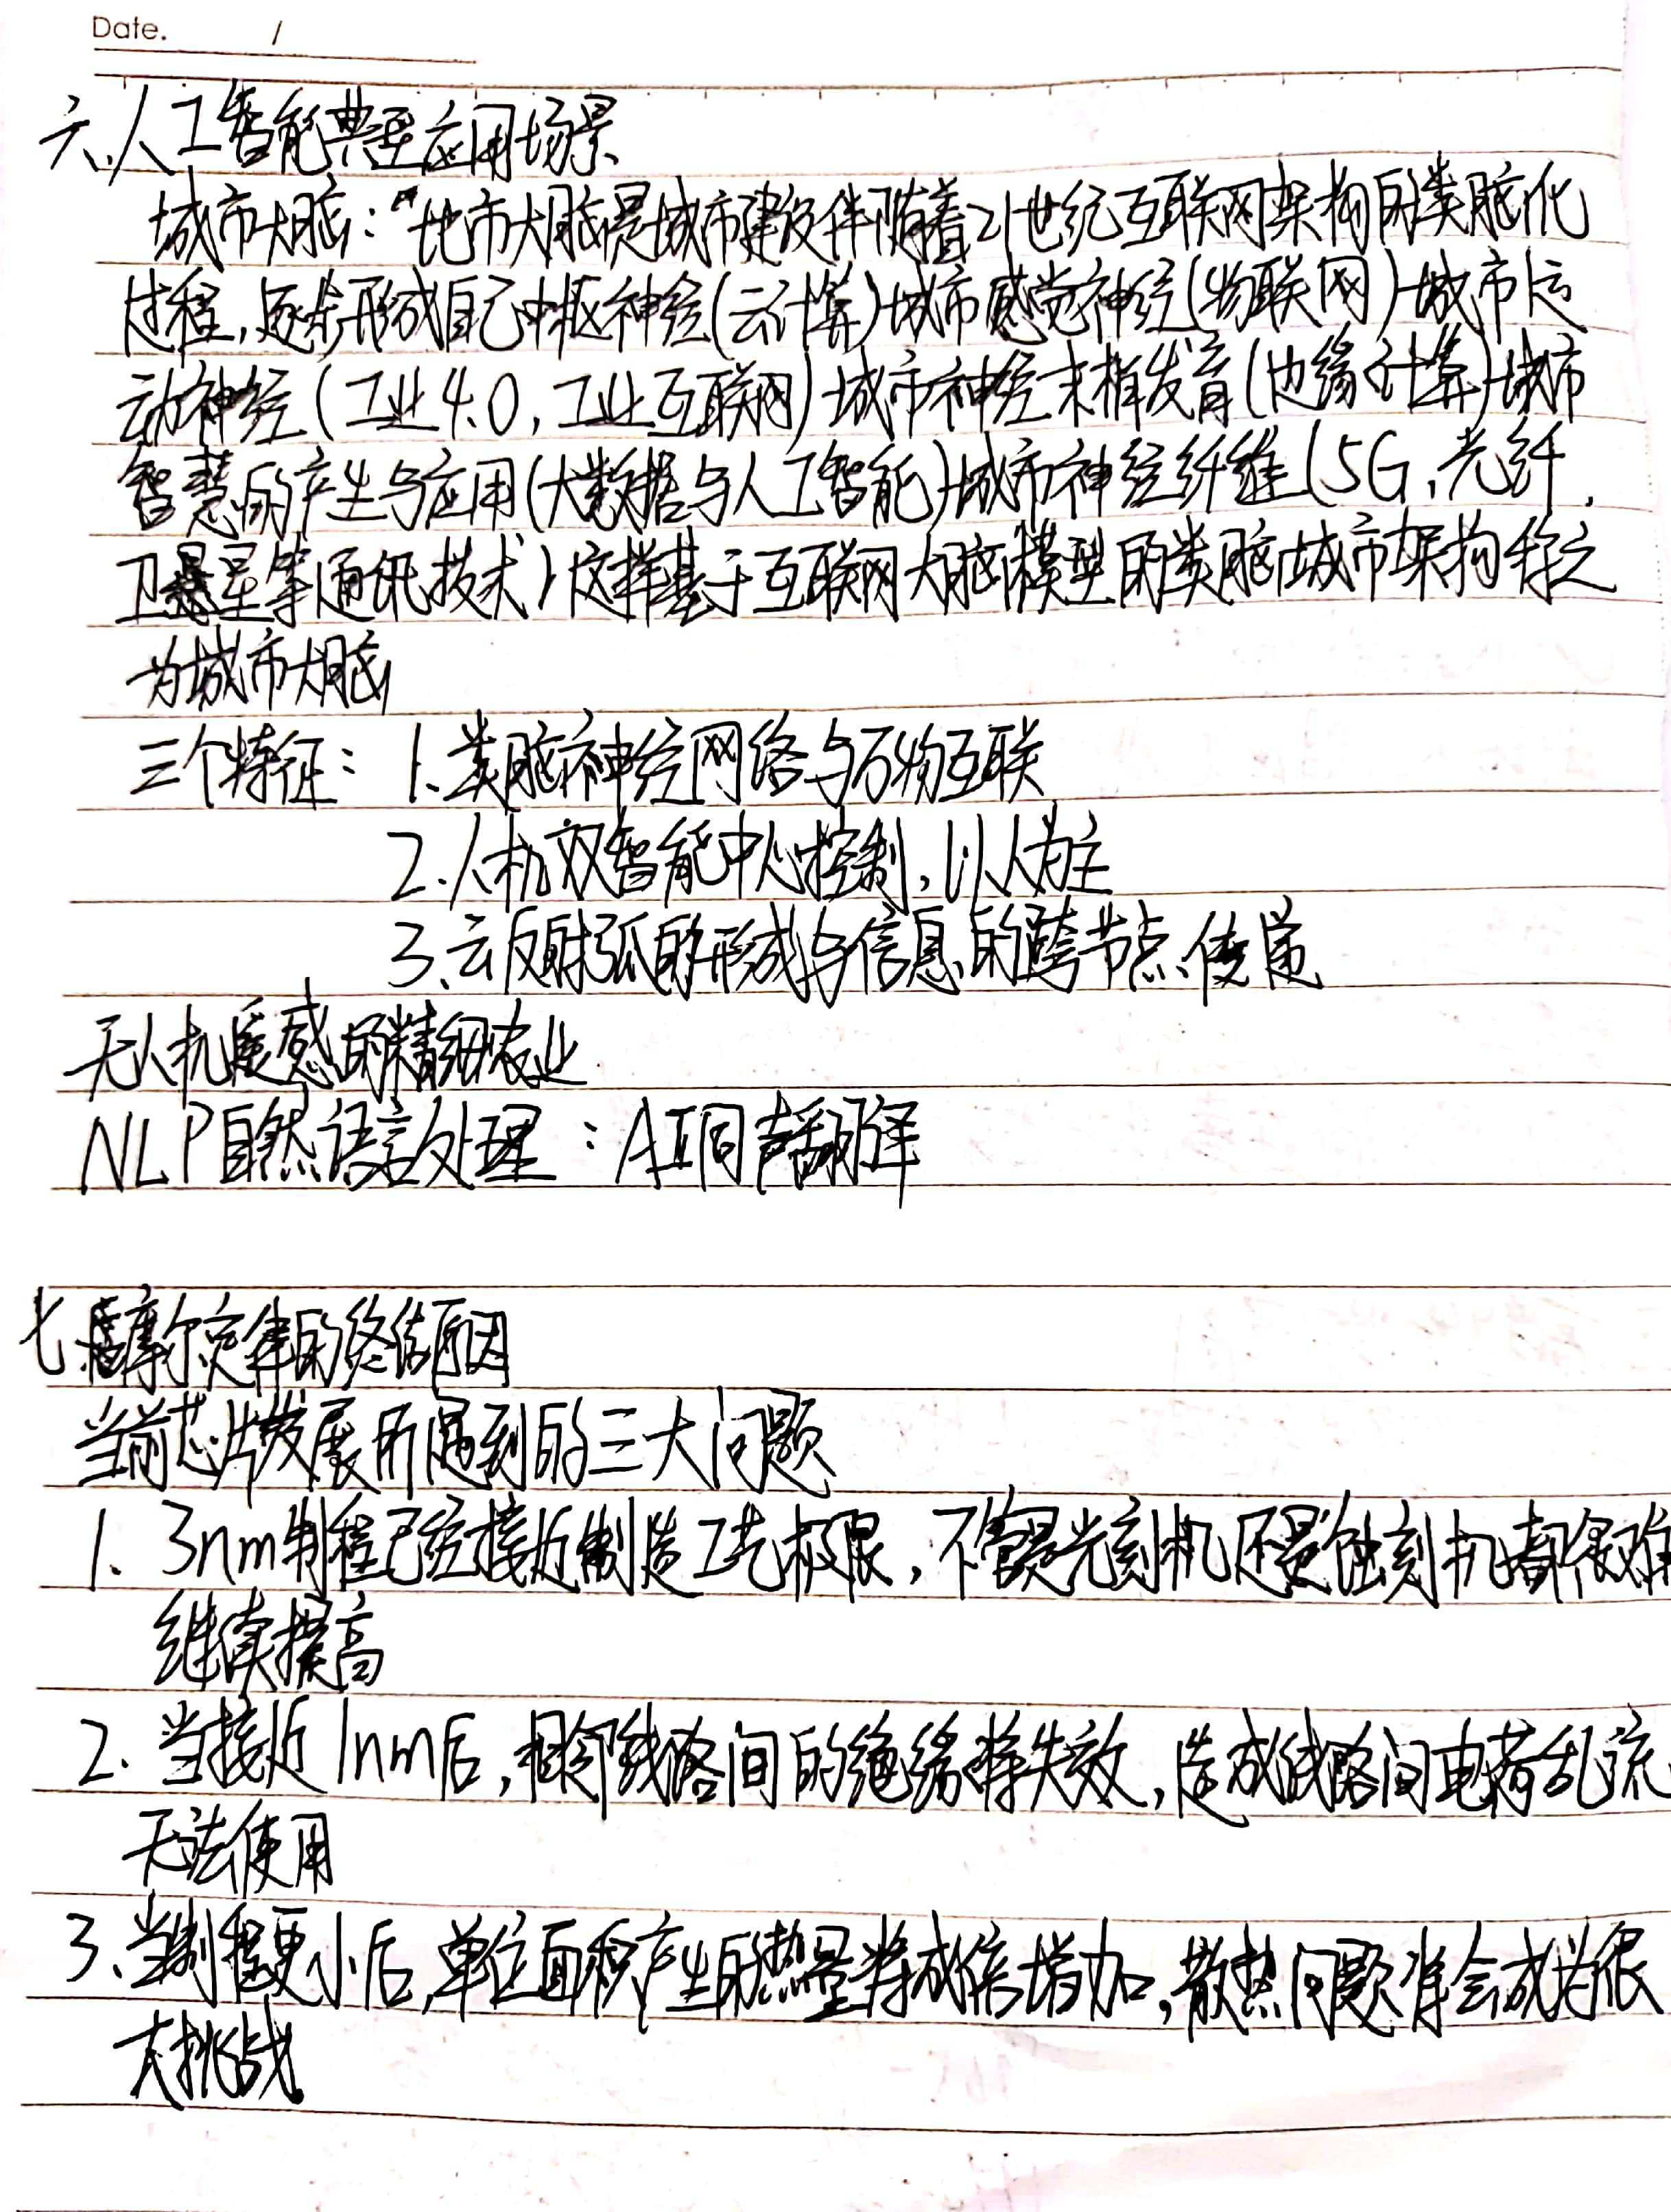 Date. /
六、人工智能典型应用场景
城市大脑："地市大脑是城市建设伴随着21世纪互联网架构的类脑化
过程,逐步形成自己中枢神经(云计算)城市感觉神经(物联网)城市运
动神经(工业4.0,工业互联网)城市神经末梢发育(边缘计算)城市
智慧的产生与应用(大数据与人工智能)城市神经纤维(5G、光纤、
卫星等通讯技术)这样基于互联网大脑模型的类脑城市架构称之
为城市大脑
三个特征：1、类脑神经网络与万物互联
2.人机双智能中心控制,以人为主
3、云反射弧的形成与信息的跨节点传递
无人机遥感的精细农业
NLP自然语言处理：AI同声翻译
七、摩尔定律的终结原因
当前芯片发展所遇到的三大问题
1、3nm制程已经接近制造工艺极限,不管是光刻机还是蚀刻机都很难
继续提高
2.当接近1nm后,相邻线路间的绝缘将失效,造成线路间电荷乱流
无法使用
3、当制程更小后,单位面积产生的热量将成倍增加,散热问题将会成为很
大挑战